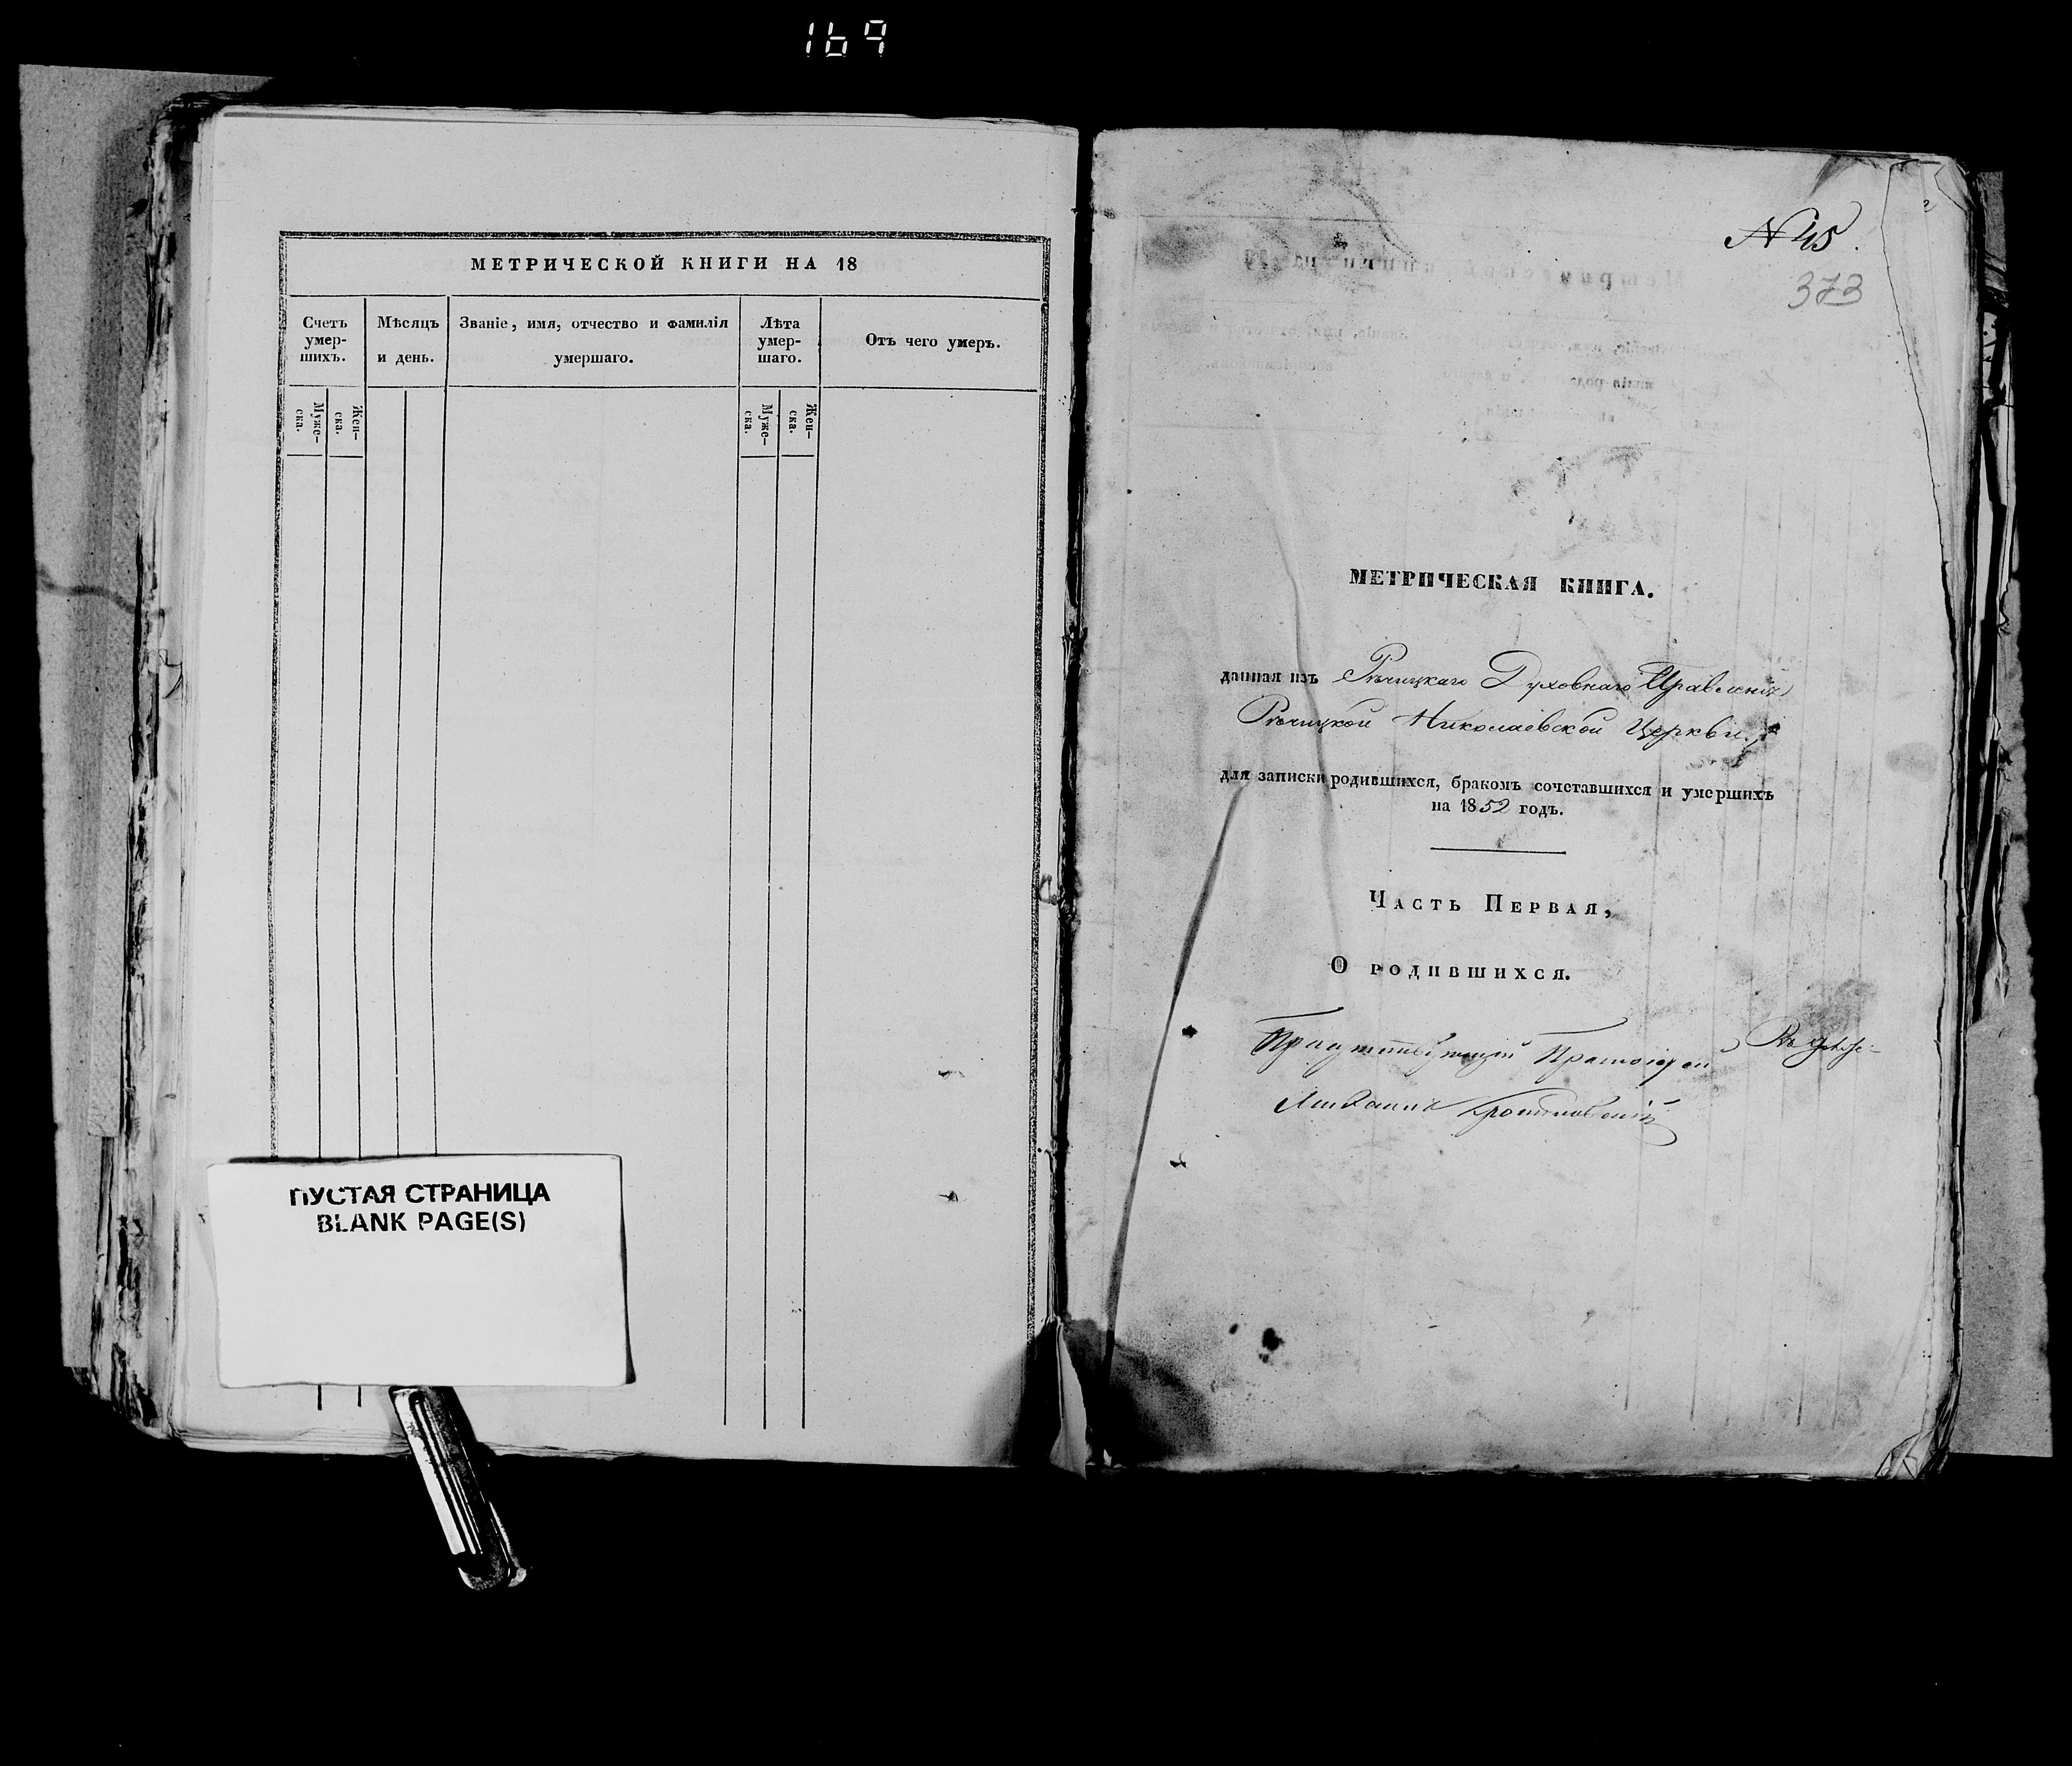 169
МЕТРИЧЕСКОЙ КНИГИ НА 18
Счетъ умер-шихъ.
Мѣсяцъ и день.
Званіе, имя, отчество и фамилія умершаго.
Лѣта умер-шаго.
Отъ чего умеръ.
Муже-ска.
Жен-ска.
Муже-ска.
Жен-ска.
ПУСТАЯ СТРАНИЦА
BLANK PAGE(S)
N 45.
373
МЕТРИЧЕСКАЯ КНИГА.
данная изъ Рѣчицкаго Духовнаго Правленія
Рѣчицкой Николаевской Церкви,
для записки родившихся, бракомъ сочетавшихся и умершихъ
на 1852 годъ.
Часть Первая,
О родившихся.
Присутствующій Протоіерей